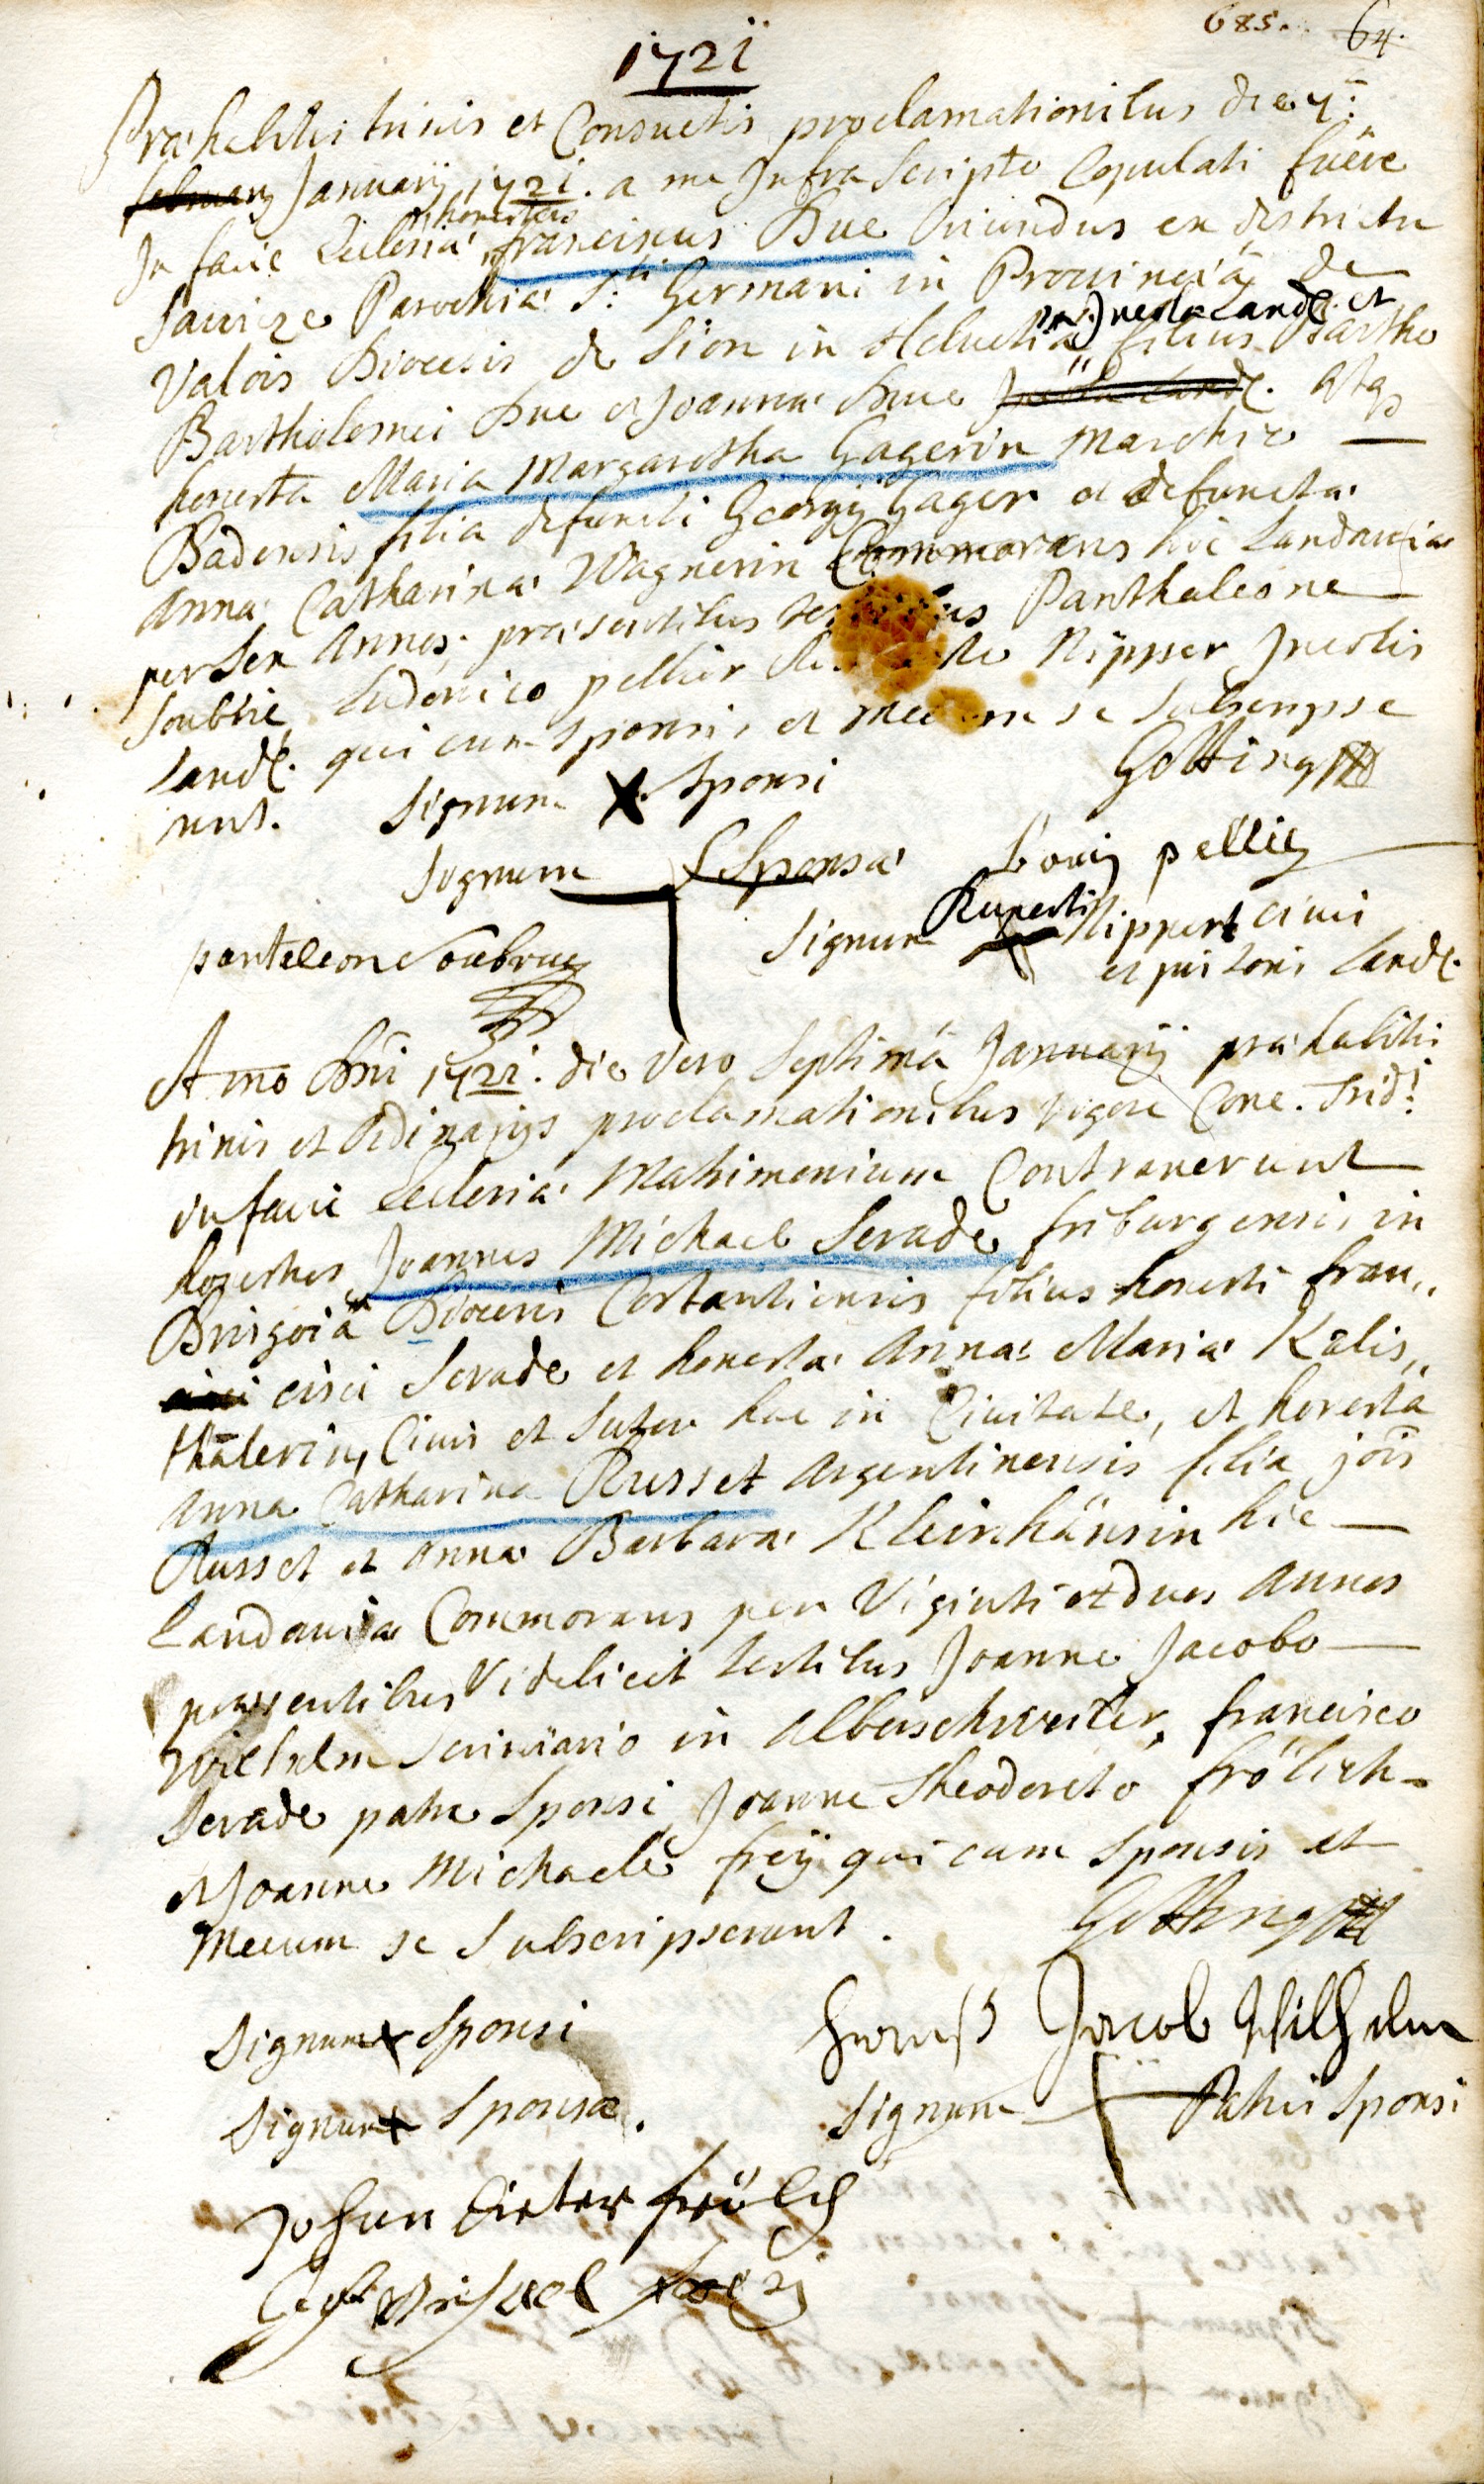 685. 64.
1721
Præhabitis trinis et Consuetis proclamationibus die 7:
februarÿ Januarÿ 1721. a me Infra Scripto Copulati fuêre
In facie Ecclesiæ honestus franciscus Due Oriundus ex districtu
Parochiæ S:ti Germani in Provinciâ de
Valois Diocesis de Sion in Helvetiâ Incola Land. et filius Bartho
Bartholomei Due et Joannæ Due Incola Land. Atq
honesta Maria Margaretha Gagerin Marchiæ
Badensis filia defuncti Georgÿ Gager et defunctæ
Annæ Catharinæ Wagnerin Commorans hic Landaviæ
per Sex Annos; præsentibus Panthaleone
Soubrie, Ludovico pellier Rippser Incolis
Land. qui cum Sponsis et mecum se Subscripse
runt. Götting
Signum X Sponsi
Signum Sponsæ Louis pelliez
Signum Ruperti Nippert civis
et pistoris Land.
panteleon Soubruez
Anno Dni 1721. die Vero Septimâ Januarÿ præhabitis
trinis et Ordinarÿs proclamationibus vigore Conc. Trid:
in facie Ecclesiæ Matrimonium Contraxerunt
honestus Joannes Michael Serade friburgensis in
Brisgoiâ Diocesis Constantiensis filius honesti fran,,
cisci Serade et honestæ Annæ Mariæ Kalis,,
thalerin, Civis et Sutor hac in Civitate, et honesta
Anna Catharina Russet Argentinensis filia jois
Russet et Annæ Barbaræ Kleinhänsin hic
Landaviæ Commorans per Viginti et duos Annos
præsentibus Videlicet testibus Joanne Jacobo
Wilhelm Scriniario in Alberschweiler, francisco
Serade patre Sponsi, Joanne Theodorito frölich
et Joanne Michaele freÿ qui cum Sponsis et
mecum se Subscripserunt. Götting
Signum x Sponsi Hanß Jacob Wilhelm
Signum x Sponsæ. Signum Patris Sponsi
Johan Dieter frölich
Michael freÿ